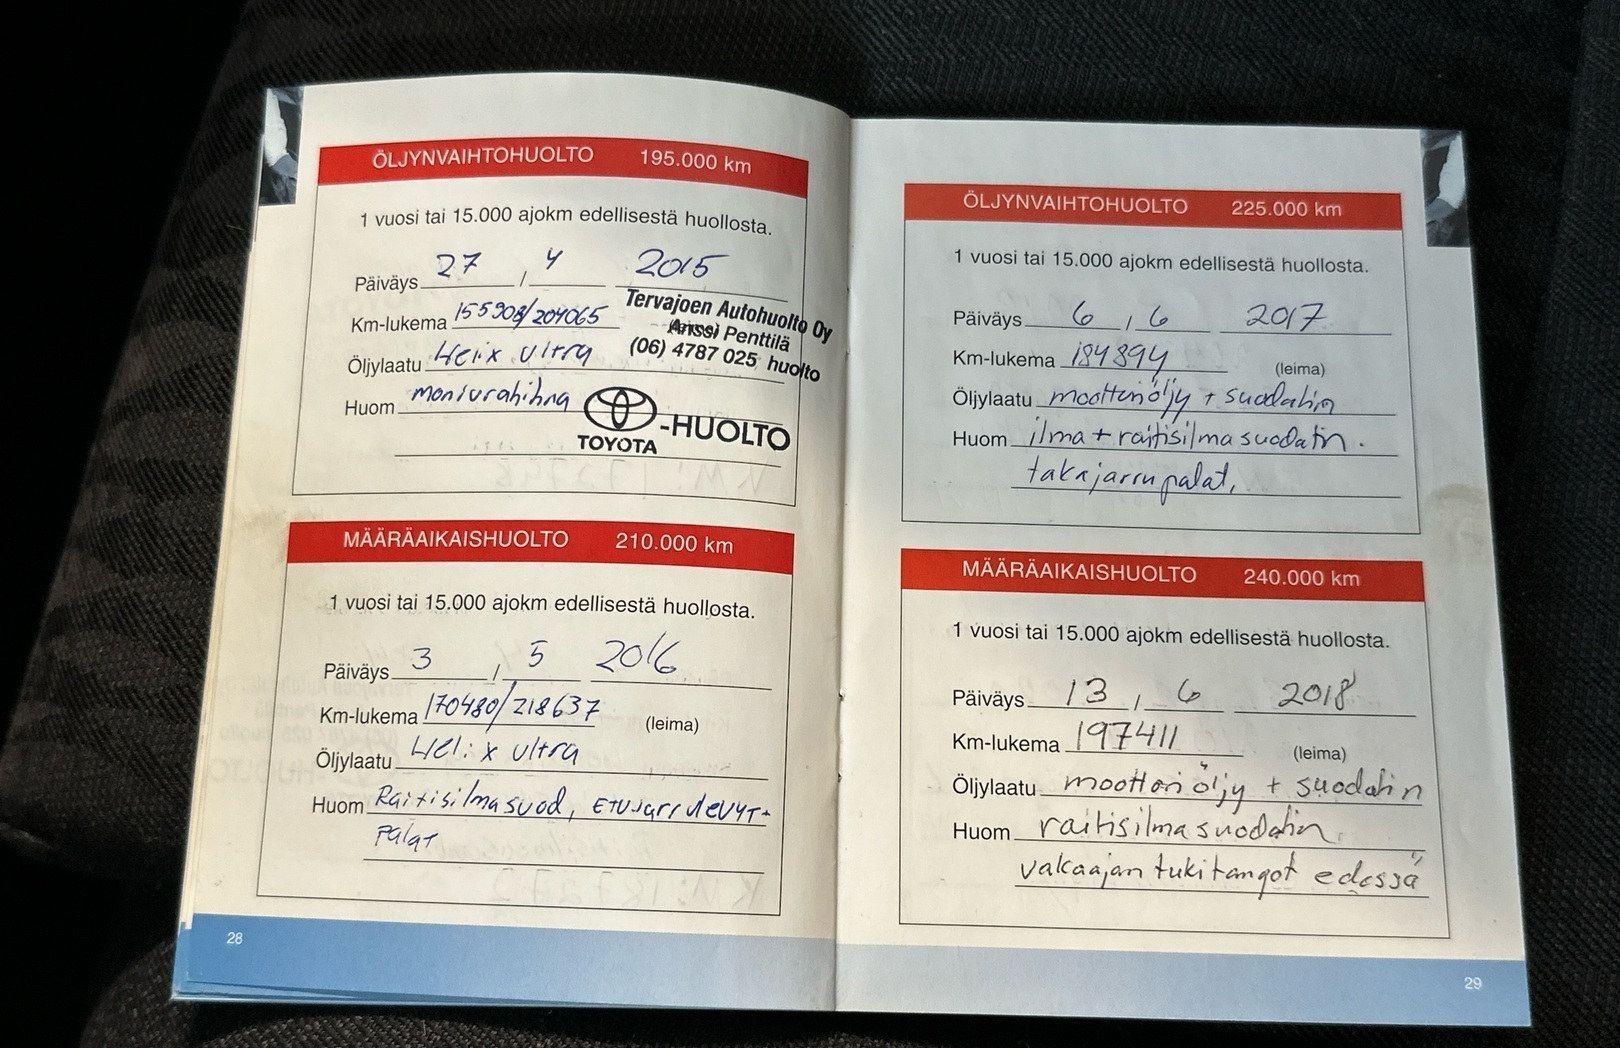 ÖLJYNVAIHTOHUOLTO 195.000 km
1 vuosi tai 15.000 ajokm edellisestä huollosta.
Päiväys 27 / 4 2015
Km-lukema 155908/204065
Öljylaatu Helix ultra
Huom moniurahihna
Tervajoen Autohuolto Oy
(Anssi) Penttilä
(06) 4787 025 huolto
TOYOTA -HUOLTO
MÄÄRÄAIKAISHUOLTO 210.000 km
1 vuosi tai 15.000 ajokm edellisestä huollosta.
Päiväys 3 / 5 2016
Km-lukema 170480/218637 (leima)
Öljylaatu Helix ultra
Huom Raitisilmasuod, ETUJarrulevyt+
palat
28
ÖLJYNVAIHTOHUOLTO 225.000 km
1 vuosi tai 15.000 ajokm edellisestä huollosta.
Päiväys 6 / 6 2017
Km-lukema 184894 (leima)
Öljylaatu moottoriöljy + suodatin
Huom ilma + raitisilmasuodatin.
takajarrupalat,
MÄÄRÄAIKAISHUOLTO 240.000 km
1 vuosi tai 15.000 ajokm edellisestä huollosta.
Päiväys 13 / 6 2018
Km-lukema 197411 (leima)
Öljylaatu moottoriöljy + suodatin
Huom raitisilmasuodatin
vakaajan tukitangot edessä
29